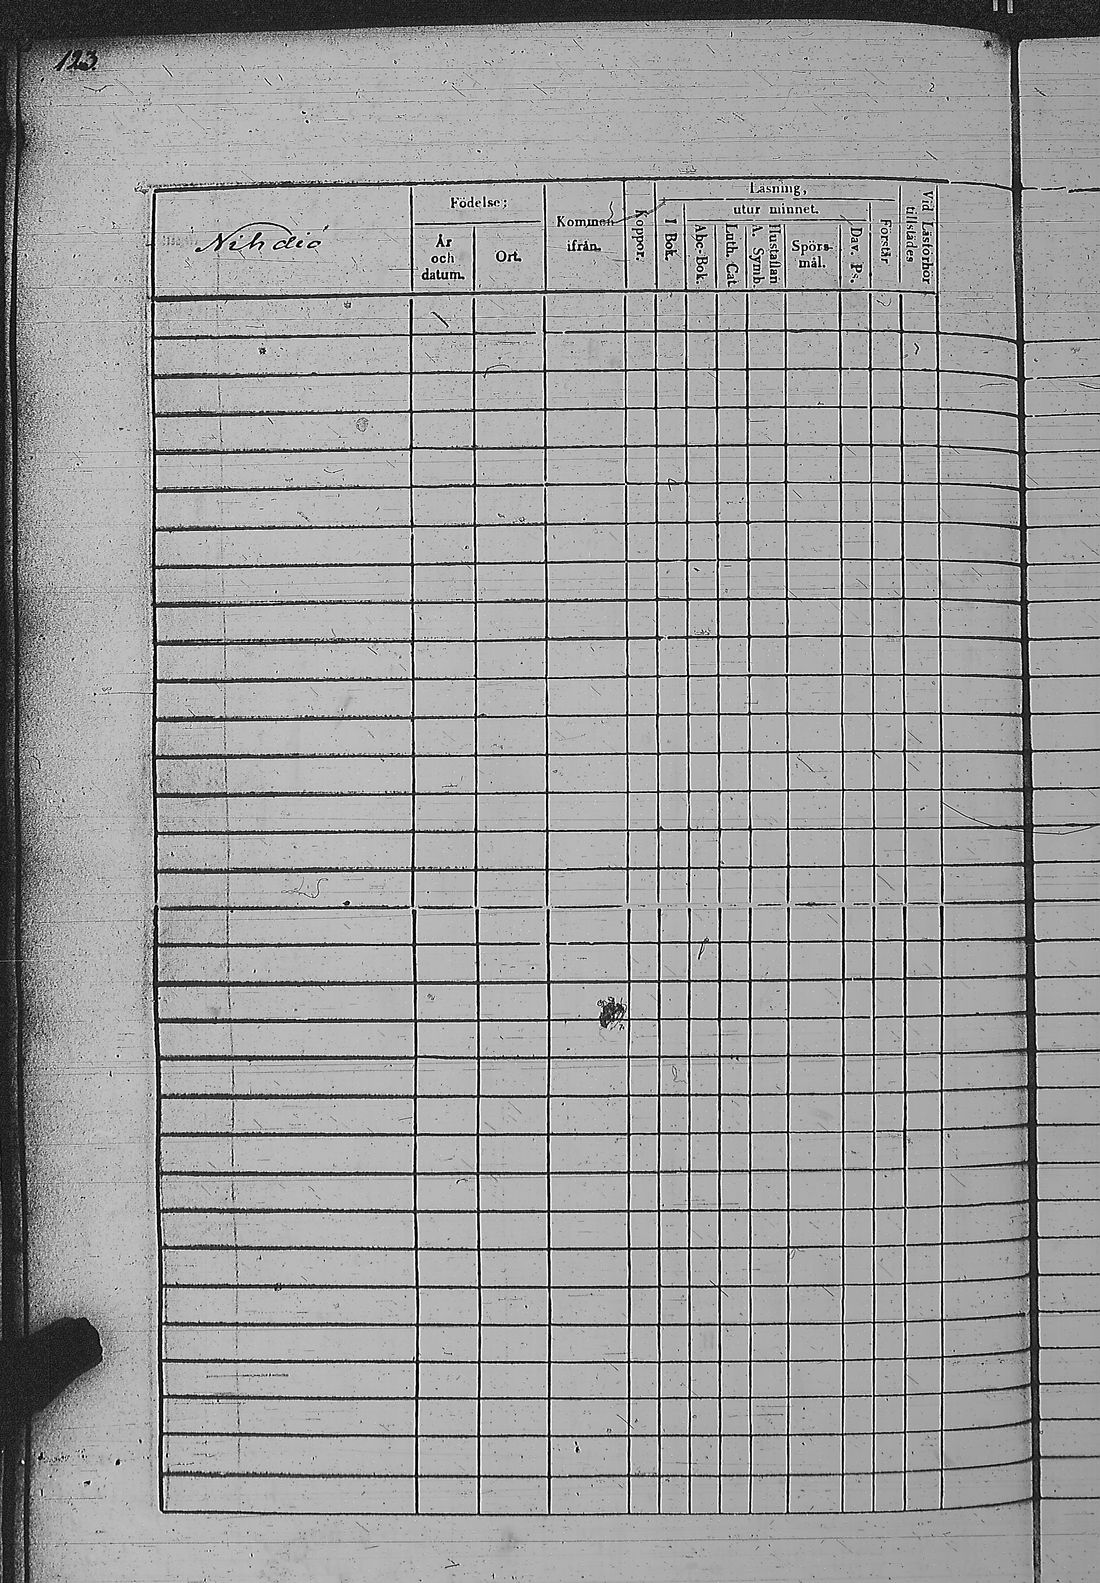 123.
Nihdiö
Födelse;
År
och
datum.
Ort.
Kommen
ifrån.
Koppor.
Läsning,
I Bok.
utur minnet.
Abc-Bok.
Luth. Cat
Hustaflan
A. Symb.
Spörs-
mål.
Dav. Ps.
Förstår
Vid Läsförhör
tillstädes